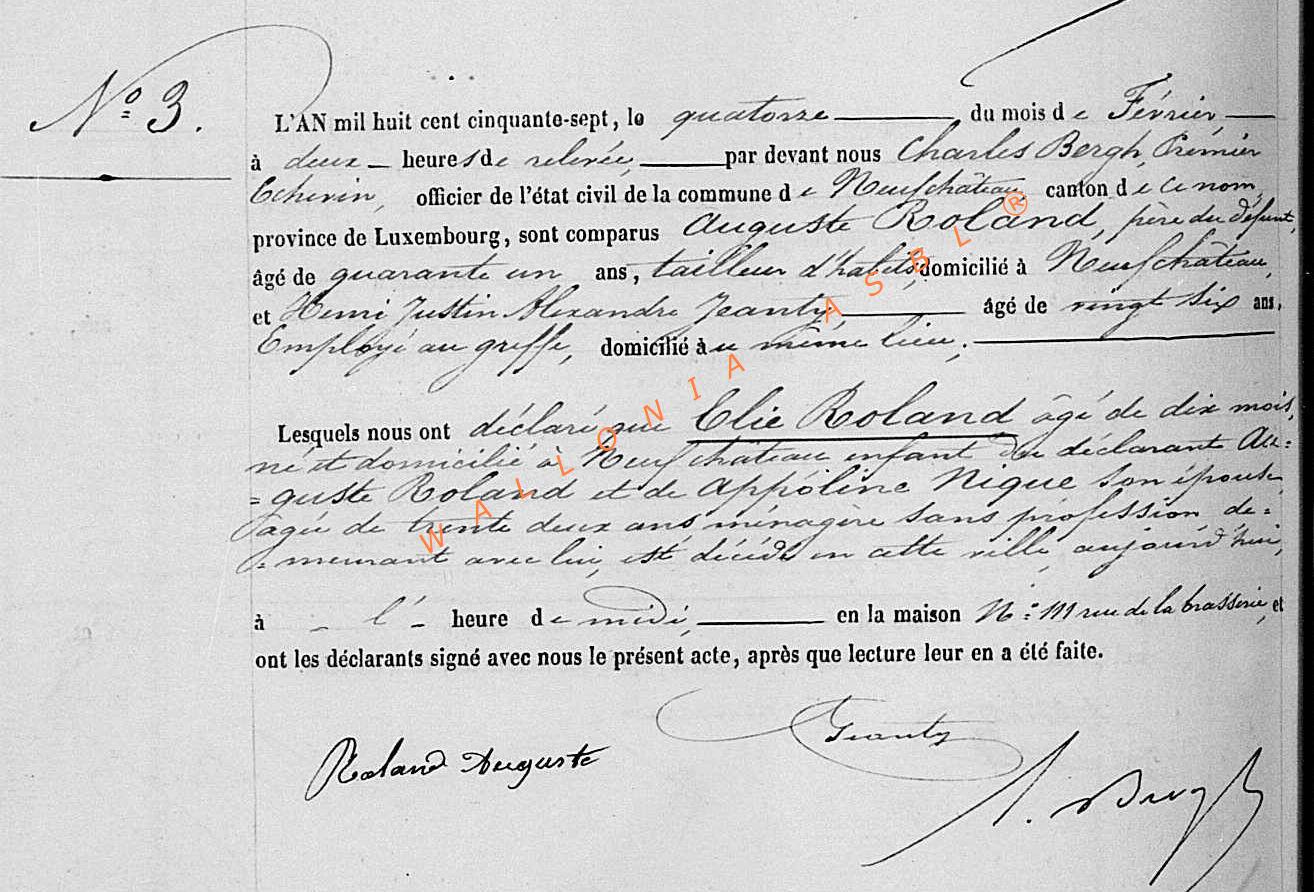 N° 3.
L'AN mil huit cent cinquante-sept, le quatorze du mois de Février
à deux heures de relevée, par devant nous Charles Bergh, Premier
Echevin, officier de l'état civil de la commune de Neufchâteau, canton de ce nom,
province de Luxembourg, sont comparus Auguste Roland, père du défunt,
âgé de quarante un ans, tailleur d'habits, domicilié à Neufchâteau,
et Henri Justin Alexandre Jeanty, âgé de vingt six ans,
Employé au greffe, domicilié au même lieu;
Lesquels nous ont déclaré que Elie Roland âgé de dix mois,
né et domicilié à Neufchâteau enfant du déclarant Au=
=guste Roland et de Appoline Nique son épouse
agée de trente deux ans ménagère sans profession de=
=meurant avec lui, est décédé en cette ville, aujourd'hui,
à l' heure de midi, en la maison N° 111 rue de la brasserie, et
ont les déclarants signé avec nous le présent acte, après que lecture leur en a été faite.
Jeanty
Roland Auguste
Bergh
WALLONIA ASBL ®